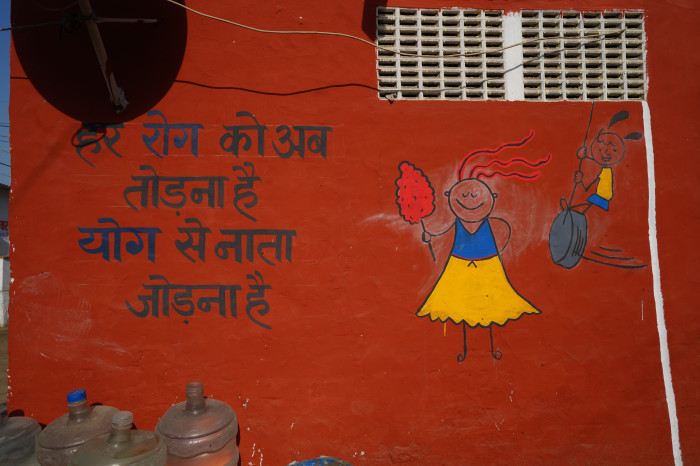 हर रोग को अब
तोड़ना है
योग से नाता
जोड़ना है